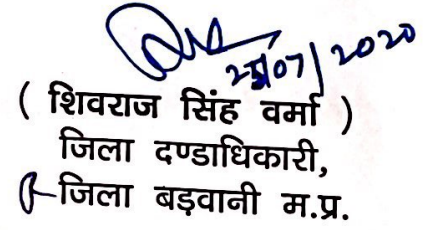 25/07/2020
( शिवराज सिंह वर्मा )
जिला दण्डाधिकारी,
जिला बड़वानी म.प्र.